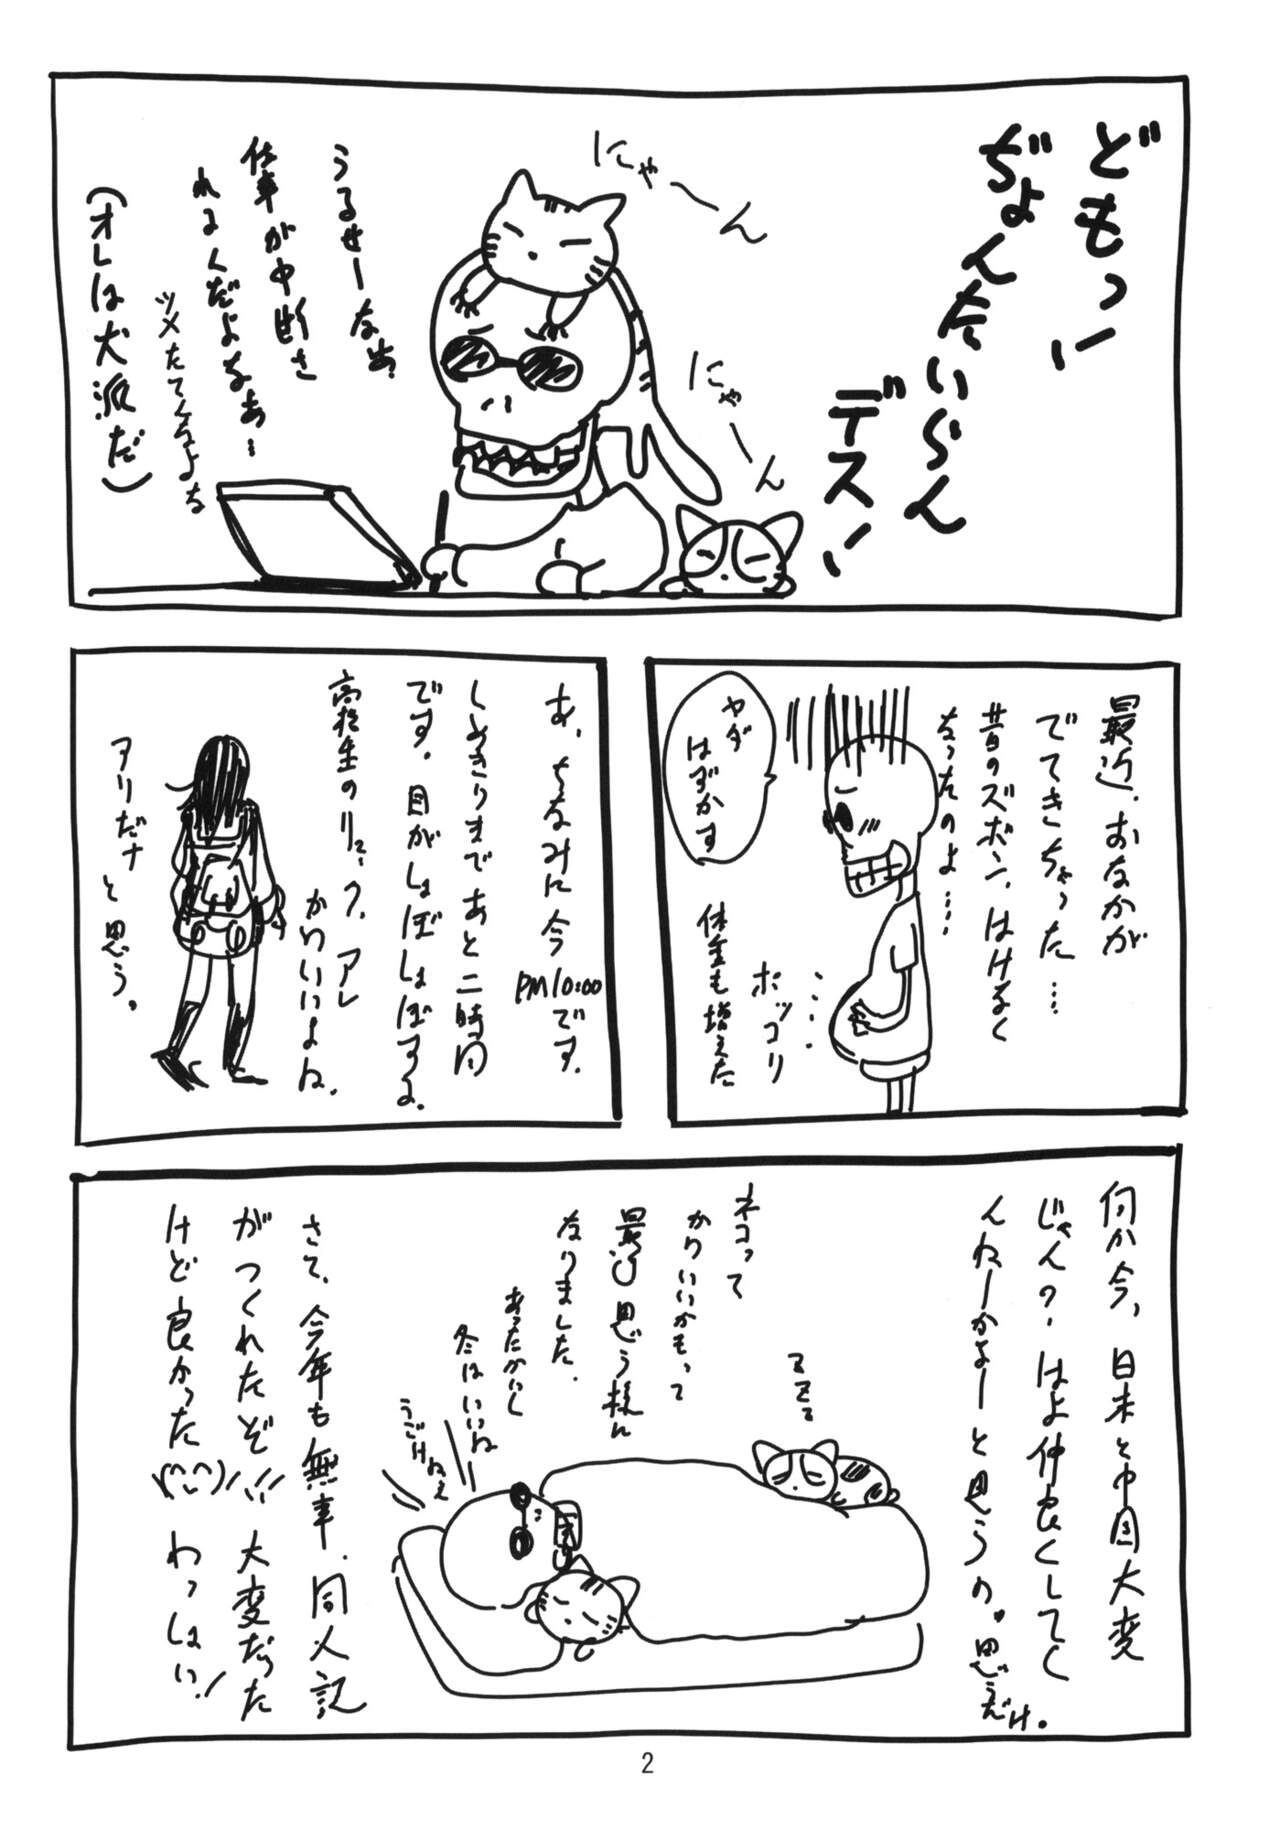 どもっ!
ぢょんたいらん
デス!
にゃーん
にゃーん
うるせーなぁ
仕事が中断さ
れるんだよなぁ…
ツメたてんなよな
(オレは犬派だ)
最近、おなかが
でてきちゃった…
昔のズボン、はけなく
なったのよ……
ヤダ
はずかす
ポッコリ
体重も増えた
あ、ちなみに今
PM10:00です。
しめきりまであと二時間
です。目がしょぼしょぼする。
高校生のリュック、アレ
かわいいよね。
アリだナ
と思う。
何か今、日本と中国大変
じゃん?はよ仲良くしてく
んねーかなーと思うの。思うだけ。
ネコって
かわいいかもって
最近思う様に
なりました。
あったかいし
冬はいいねー
うごけねぇ
さて、今年も無事、同人誌
がつくれたぞ!!! 大変だった
けど良かった わっしょい!
2